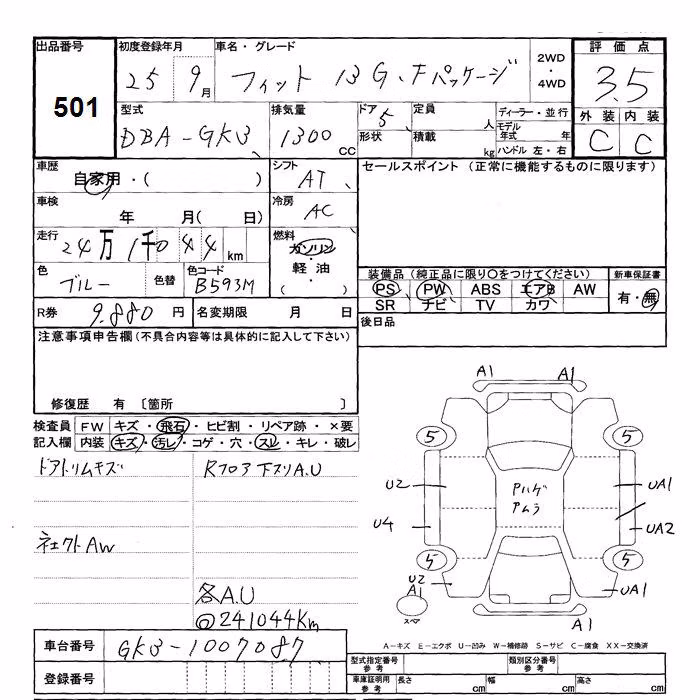 出品番号 初度登録年月 車名・グレード 2WD・4WD 評価点
501 25 9月 フィット 13G、Fパッケージ 3.5
型式 排気量 ドア 5 定員 人 ディーラー・並行 外装 内装
DBA-GK3 1300cc 形状 積載 kg モデル年式 年 ハンドル 左・右 C C
車歴 シフト セールスポイント (正常に機能するものに限ります)
自家用・( ) AT
車検 冷房
年 月( 日) AC
走行 燃料
24万1千044km ガソリン・軽油・( )
色 色替 色コード 装備品 (純正品に限り○をつけてください) 新車保証書
ブルー B593M PS PW ABS エアB AW 有・無
SR ナビ TV カワ
R券 9.880円 名変期限 月 日 後日品
注意事項申告欄 (不具合内容等は具体的に記入して下さい)
修復歴 有 〔箇所 〕
検査員 FW キズ・飛石・ヒビ割・リペア跡・×要
記入欄 内装 キズ・汚レ・コゲ・穴・スレ・キレ・破レ
ドアトリムキズ Rフロア下スリA.U
AW
各A.U
@241044Km
A1 A1
5 5
U2 UA1
Pハゲ
アムラ
U4 UA2
5 5
U2 UA1
A1
スペア A1
A-キズ E-エクボ U-凹み W-補修跡 S-サビ C-腐食 XX-交換済
車台番号 GK3-1007087
型式指定番号 参考 類別区分番号 参考
登録番号
車庫証明用 参考 長さ cm 幅 cm 高さ cm